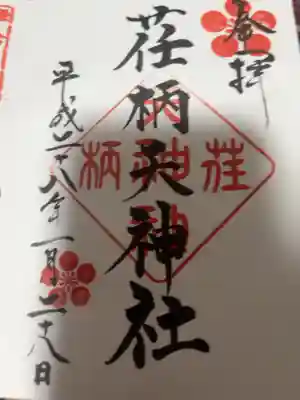 奉拝
荏柄天神社
平成二十八年一月二十八日